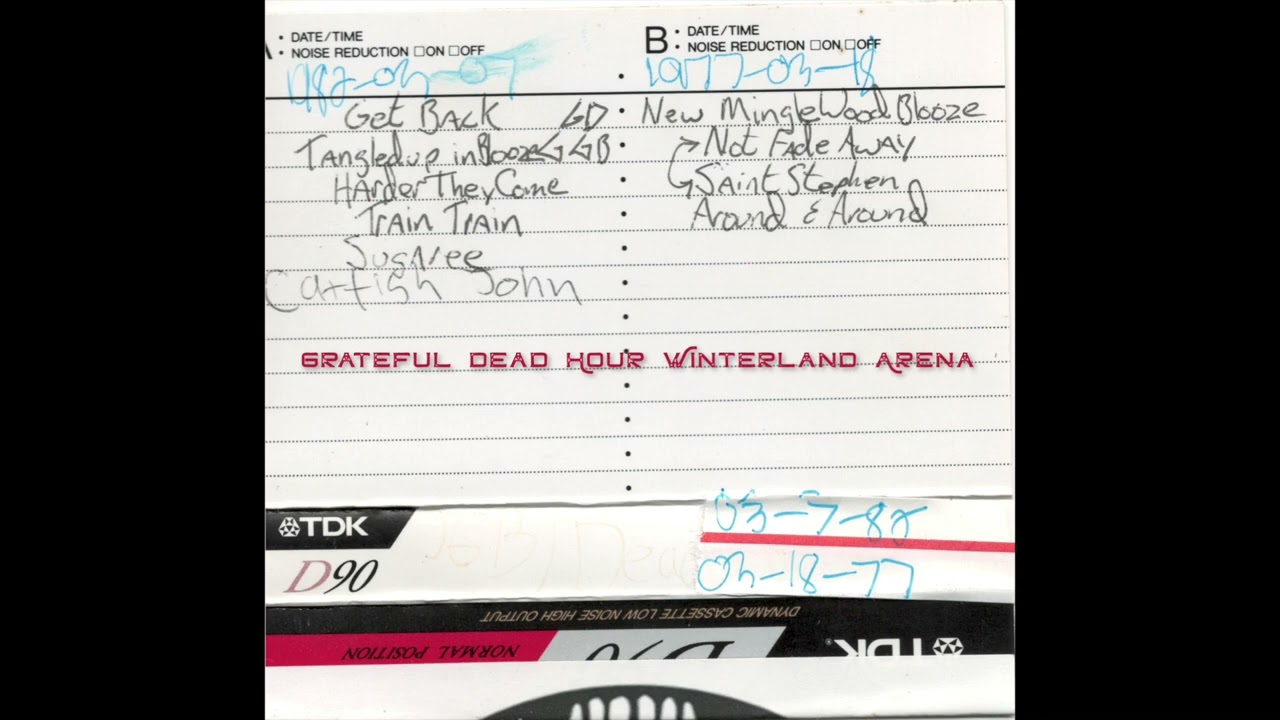 A • DATE/TIME
• NOISE REDUCTION □ON □OFF
1982-03-07
Get Back GD
Tangled up in Blooze GGB
Harder They Come
Train Train
Sugree
Catfish John
B • DATE/TIME
• NOISE REDUCTION □ON □OFF
1977-03-18
New MingleWood Blooze
Not Fade Away
Saint Stephen
Around & Around
GRATEFUL DEAD HOUR WINTERLAND ARENA
TDK
D90
03-7-82
03-18-77
DYNAMIC CASSETTE LOW NOISE HIGH OUTPUT
NORMAL POSITION
D90
TDK